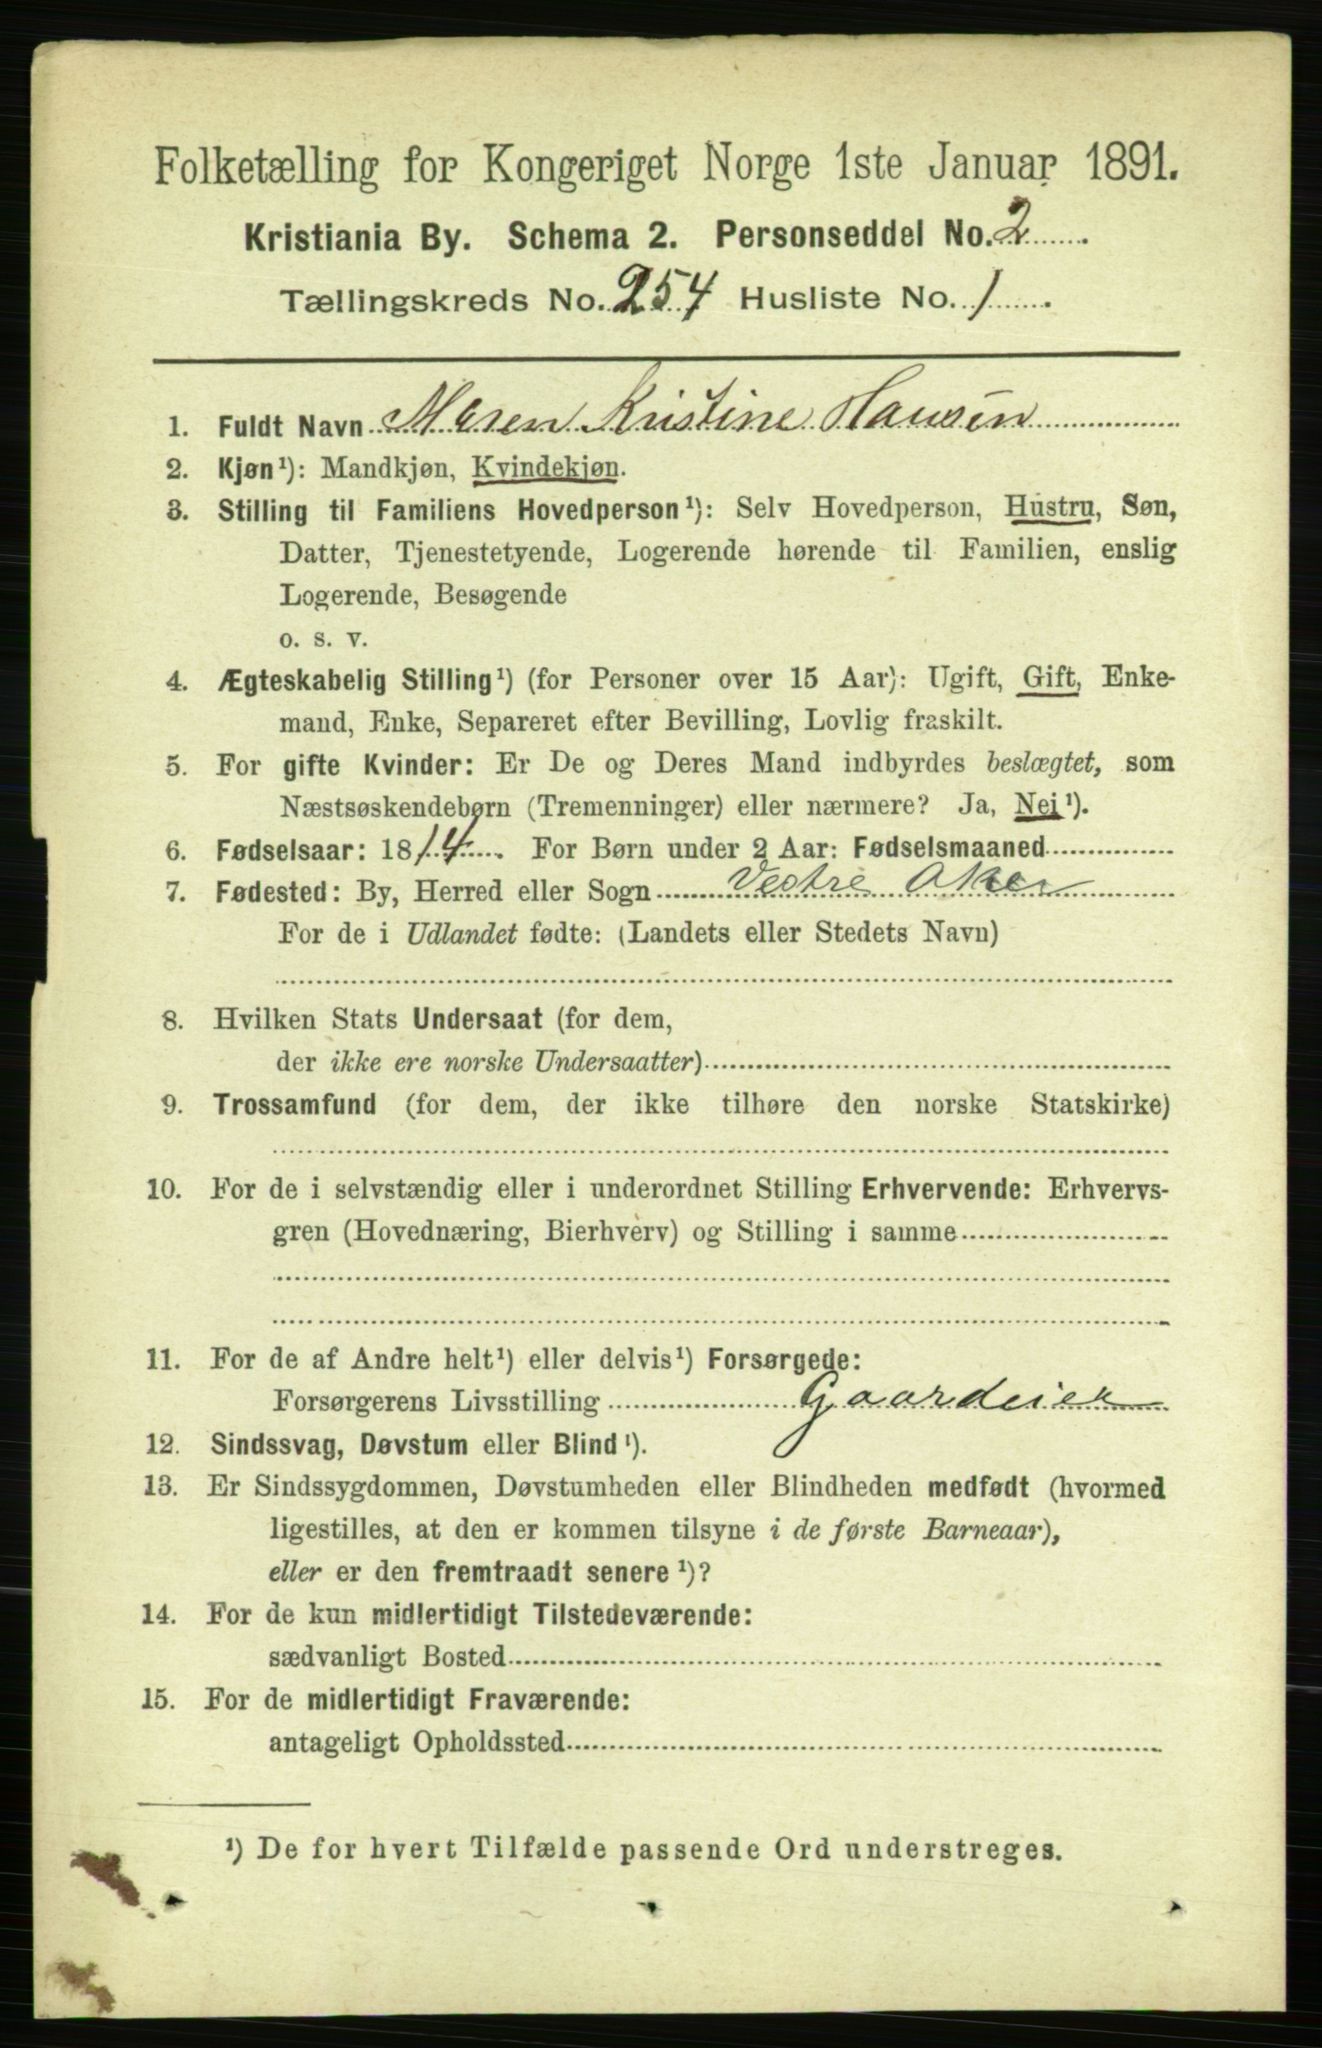 Folketælling for Kongeriget Norge 1ste Januar 1891.
Kristiania By. Schema 2. Personseddel No. 2
Tællingskreds No. 254 Husliste No. 1
1. Fuldt Navn Maren Kristine Hansen
2. Kjøn¹): Mandkjøn, Kvindekjøn.
3. Stilling til Familiens Hovedperson¹): Selv Hovedperson, Hustru, Søn,
Datter, Tjenestetyende, Logerende hørende til Familien, enslig
Logerende, Besøgende
o. s. v.
4. Ægteskabelig Stilling¹) (for Personer over 15 Aar): Ugift, Gift, Enke-
mand, Enke, Separeret efter Bevilling, Lovlig fraskilt.
5. For gifte Kvinder: Er De og Deres Mand indbyrdes beslægtet, som
Næstsøskendebørn (Tremenninger) eller nærmere? Ja, Nei¹).
6. Fødselsaar: 1814. For Børn under 2 Aar: Fødselsmaaned
7. Fødested: By, Herred eller Sogn Vestre Aker
For de i Udlandet fødte: (Landets eller Stedets Navn)
8. Hvilken Stats Undersaat (for dem,
der ikke ere norske Undersaatter)
9. Trossamfund (for dem, der ikke tilhøre den norske Statskirke)
10. For de i selvstændig eller i underordnet Stilling Erhvervende: Erhvervs-
gren (Hovednæring, Bierhverv) og Stilling i samme
11. For de af Andre helt¹) eller delvis¹) Forsørgede:
Forsørgerens Livsstilling Gaardeier
12. Sindssvag, Døvstum eller Blind¹).
13. Er Sindssygdommen, Døvstumheden eller Blindheden medfødt (hvormed
ligestilles, at den er kommen tilsyne i de første Barneaar),
eller er den fremtraadt senere¹)?
14. For de kun midlertidigt Tilstedeværende:
sædvanligt Bosted
15. For de midlertidigt Fraværende:
antageligt Opholdssted
¹) De for hvert Tilfælde passende Ord understreges.